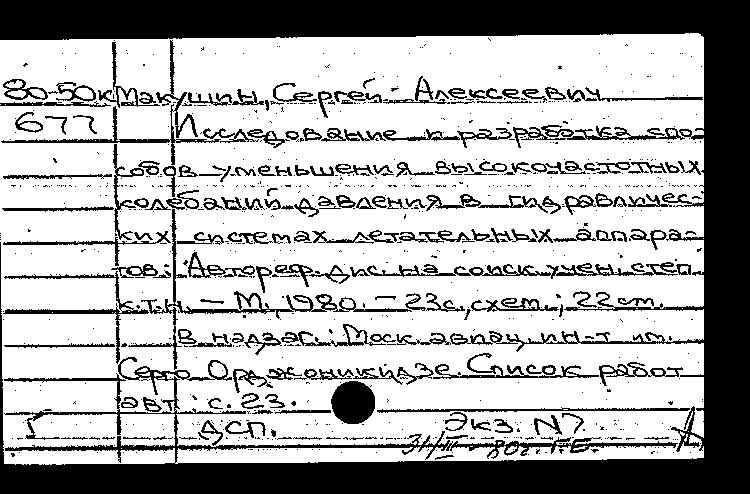 80-50к Макушин, Сергей Алексеевич
677 Исследование и разработка спо-
собов уменьшения высокочастотных
колебаний давления в гидравличес-
ких системах летательных аппара-
тов: Автореф. дис. на соиск. учен. степ.
к.т.н. — М., 1980. — 23с., схем.; 22 см.
В надзаг.: Моск. авиац. ин-т им.
Серго Орджоникидзе. Список работ
авт.: с. 23.
Г ДСП. Экз. N7
31/III - 80г. Г.Е.